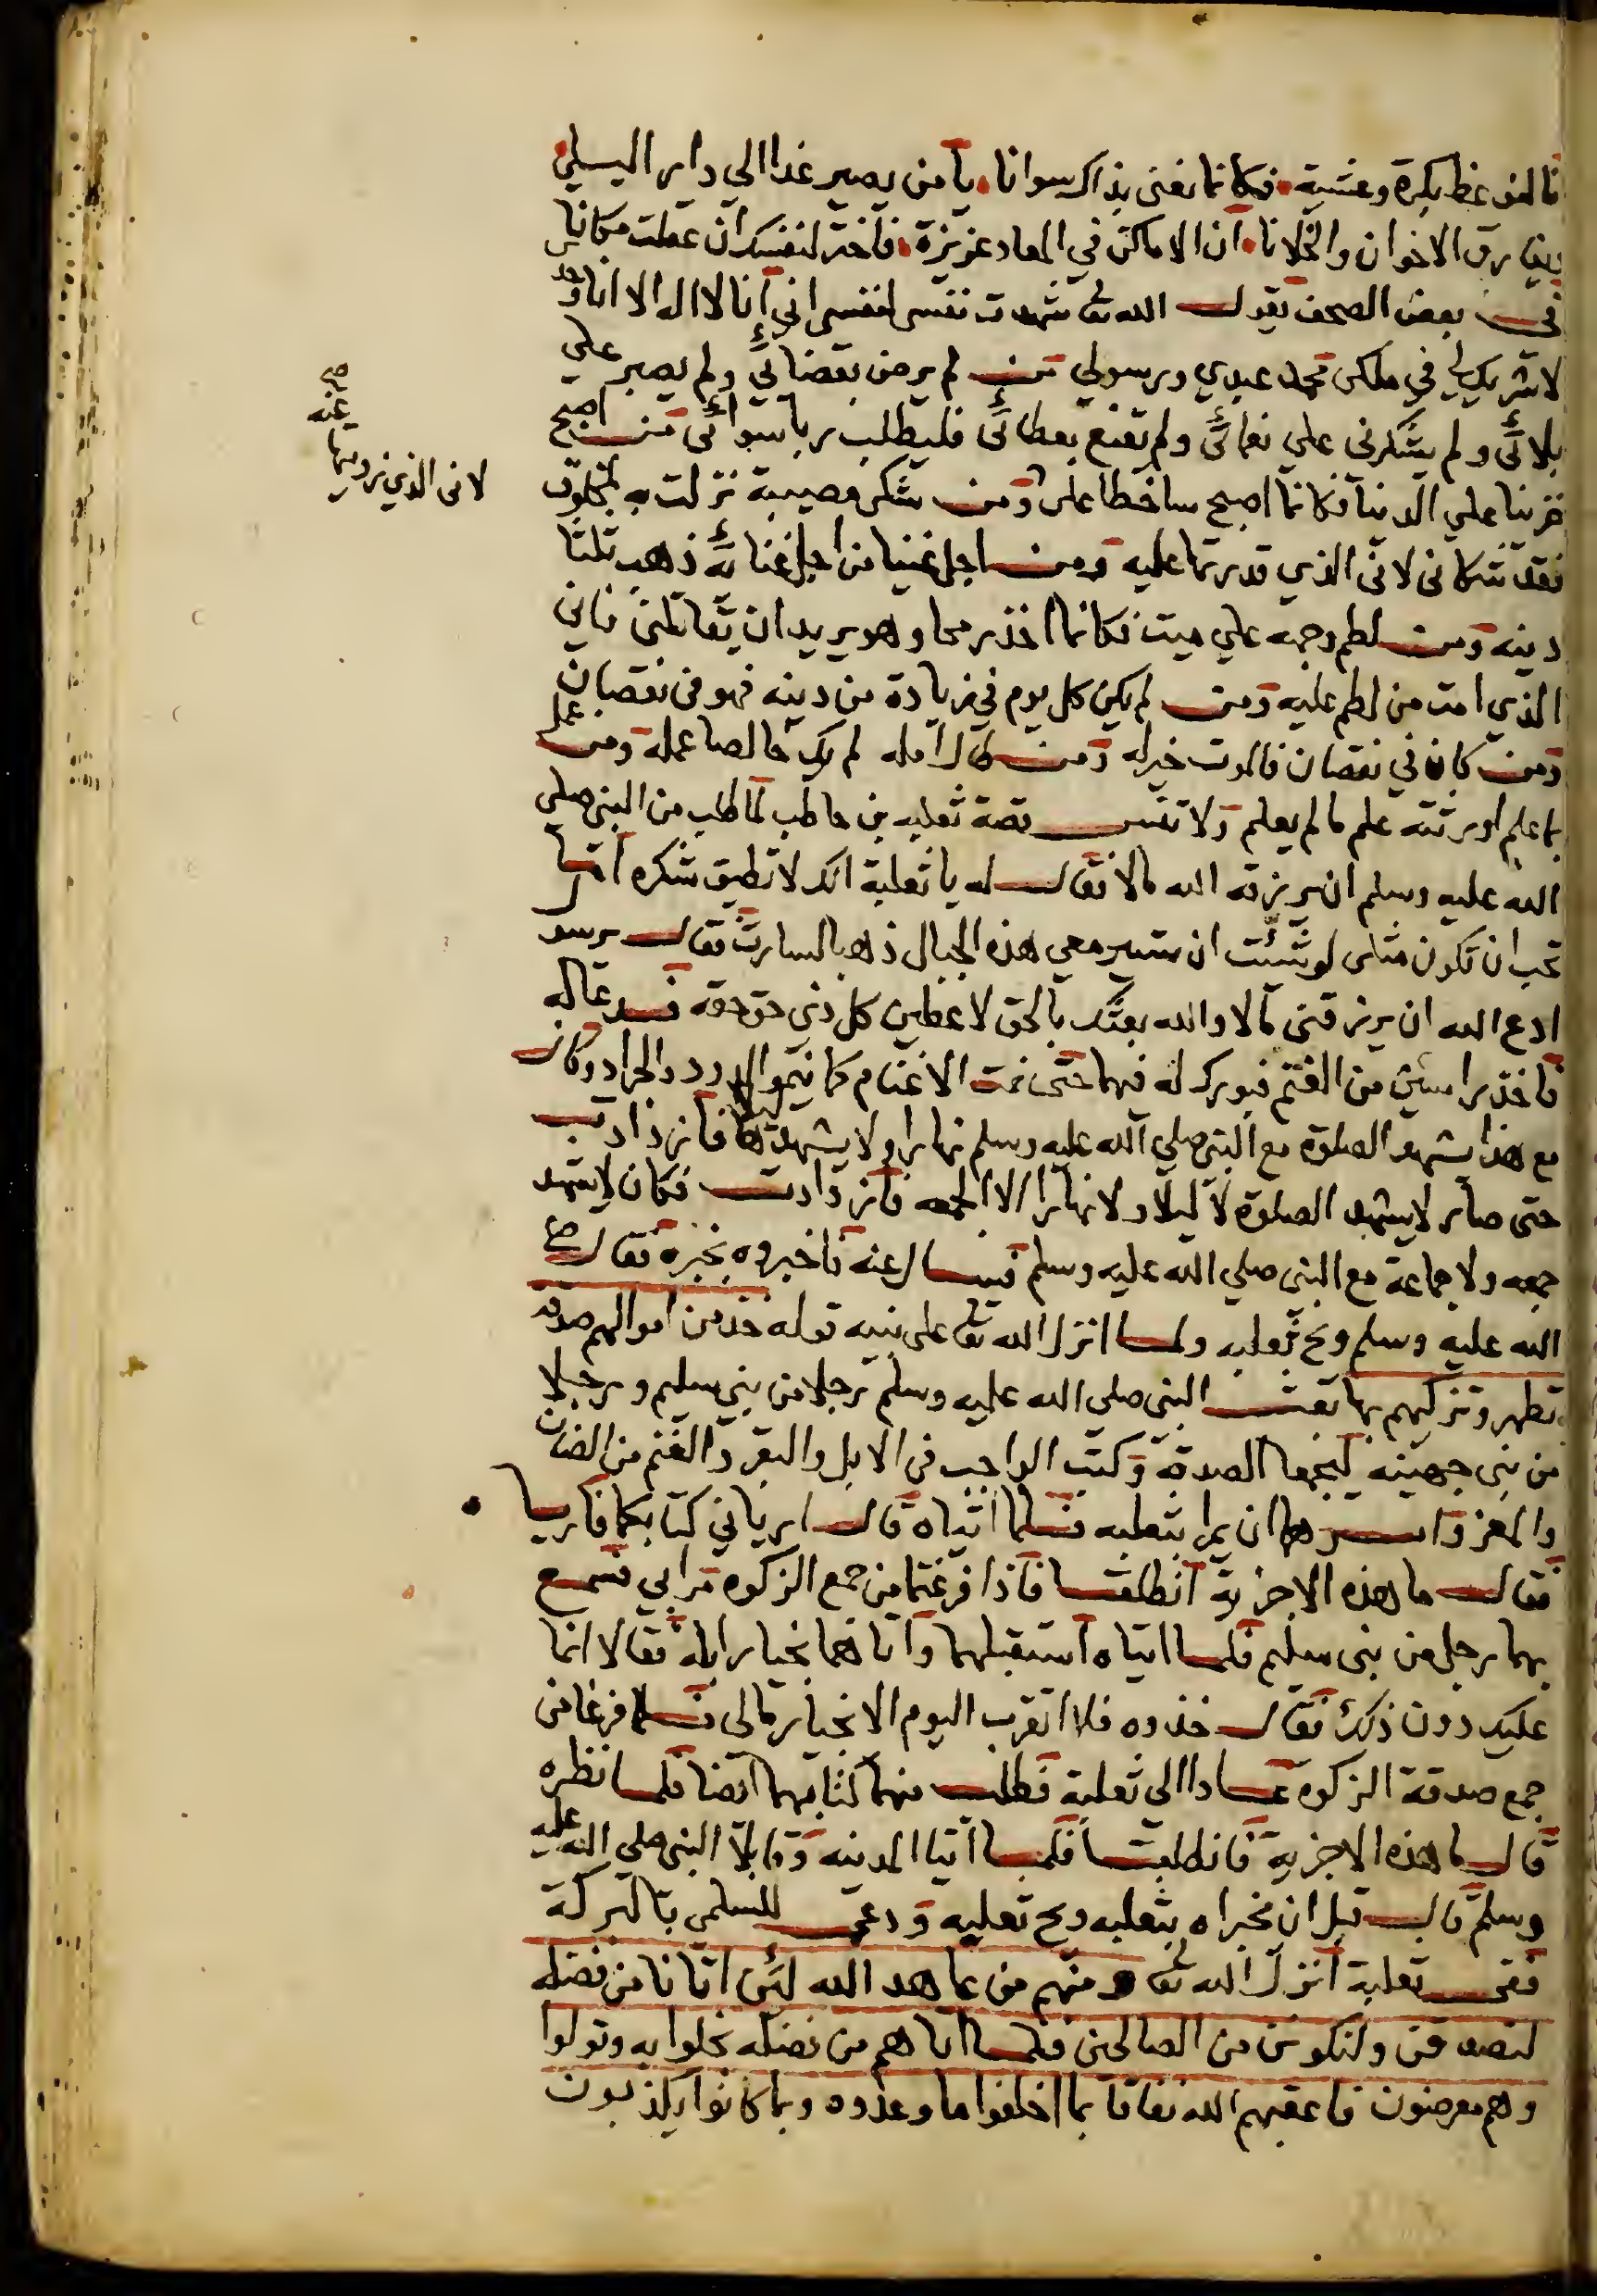 فالموعظ بكرة وعشية فكانما يعنى بذاك سوانا يا من يصير غدا الى دار البلى
ويفارق الاخوان والخلانا ان الاماكن في المعاد عزيزة فاختر لنفسك ان عقلت مكانا
في بعض الصحف يقول الله تعالى شهدت نفسى لنفسى اني انا لا اله الا انا وحدي
لا شريك لي في ملكى محمد عبدي ورسولي من لم يرض بقضائي ولم يصبر علي
بلائي ولم يشكرنى علي نعمائي ولم يقنع بعطائي فليطلب ربا سوائي من اصبح
حزينا علي الدنيا فكانما اصبح ساخطا على ومن شكى مصيبة نزلت به لمخلوق
فقد شكانى لانى الذي قدرتها عليه ومن اجل غنيا من اجل غنائه ذهب ثلثا
دينه ومن لطم وجهه علي ميت فكانما اخذ رمحا وهو يريد ان يقاتلنى فاني
الذي امت من لطم عليه ومن لم يكن كل يوم في زيادة من دينه فهو في نقصان
ومن كان في نقصان فالموت خير له ومن طال امله لم يك خالصا عمله ومن عمل
بما علم اورثته علم ما لم يعلم ولا تنس قصة ثعلبه بن حاطب لما طلب من النبى صلى
الله عليه وسلم ان يرزقه الله مالا فقال له يا ثعلبة انك لا تطيق شكره اما
تحب ان تكون مثلى لو شئت ان تسير معي هذه الجبال ذهبا لسارت فقال يرسو
ادع الله ان يرزقنى مالا والله بعثك بالحق لاعطين كل ذي حق حقه فدعا له
فاخذ راسين من الغنم فبورك له فيها حتى نمت الاغنام كما ينمو الدود والجراد وكان
مع هذا يشهد الصلوة مع النبى صلي الله عليه وسلم نهارا ولا يشهدها ليلا فازدادت
حتى صار لا يشهد الصلوة لا ليلا ولا نهارا الا الجمعه فازدادت فكان لا يشهد
جمعه ولا جماعة مع النبى صلي الله عليه وسلم فيسال عنه فاخبروه بخبره فقال صلى
الله عليه وسلم ويح ثعلبه ولما انزل الله تعالى على نبيه قوله خذ من اموالهم صدقة
تطهر وتزكيهم بها بعث النبى صلى الله عليه وسلم رجلا من بني سليم ورجلا
من بنى جهينه ليجمعا الصدقة وكتب الواجب في الابل والبقر والغنم من الضان
والمعز وامرهما ان يمرا بثعلبه فلما اتياه قال ارياني كتابكما فارياه
فقال ما هذه الا جزية انطلقا فاذا فرغتما من جمع الزكوه مرا بي فسمع
بهما رجل من بنى سليم فلما اتياه استقبلهما واتاهما بخيار ابله فقالا انما
عليك دون ذلك فقال خذوه فلا اتقرب اليوم الا بخيار مالى فلما فرغا من
جمع صدقة الزكوة عادا الى ثعلبة فطلب منهما كتابهما ايضا فلما نظره
قال ما هذه الا جزية فانطلقا فلما اتيا المدينه وقابلا النبى صلى الله عليه
وسلم قال قبل ان يخبراه بثعلبه ويح ثعلبه ودعى للسلمى بالبركة
ففى ثعلبة انزل الله تعالى ومنهم من عاهد الله لئن اتانا من فضله
لنصدقن ولنكونن من الصالحين فلما اتاهم من فضله بخلوا به وتولوا
وهم معرضون فاعقبهم الله نفاقا بما اخلفوا ما وعدوه وبما كانوا يكذبون
لانى الذي زويتها
عنه
صح